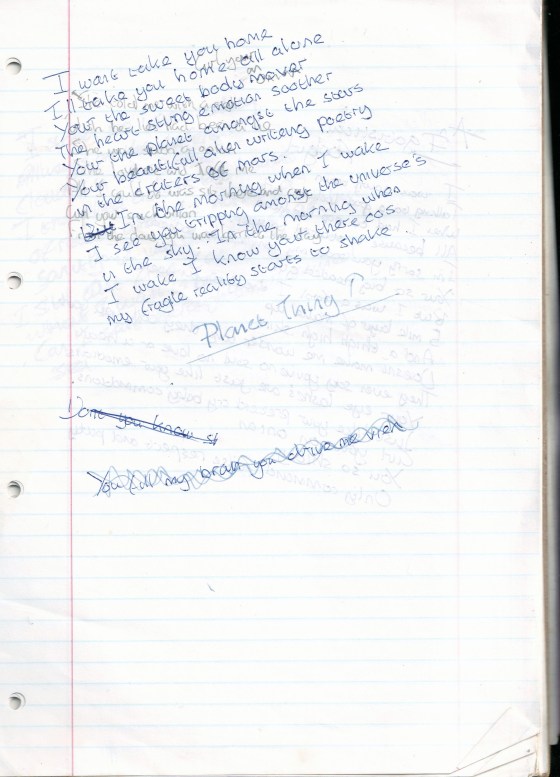 I want take you home
I'll take you home all alone
Your the sweet body mover
The heart string emotion soother
Your the planet amongst the stars
Your beautifull alien writeing poetry
in the craters of mars.
In the morning when I wake
I see you tripping amongst the universe's
in the sky. In the morning when
I wake I know your there cos
my fragile reality starts to shake.
Planet Thing?
Dont you know
You fill my brain you drive me